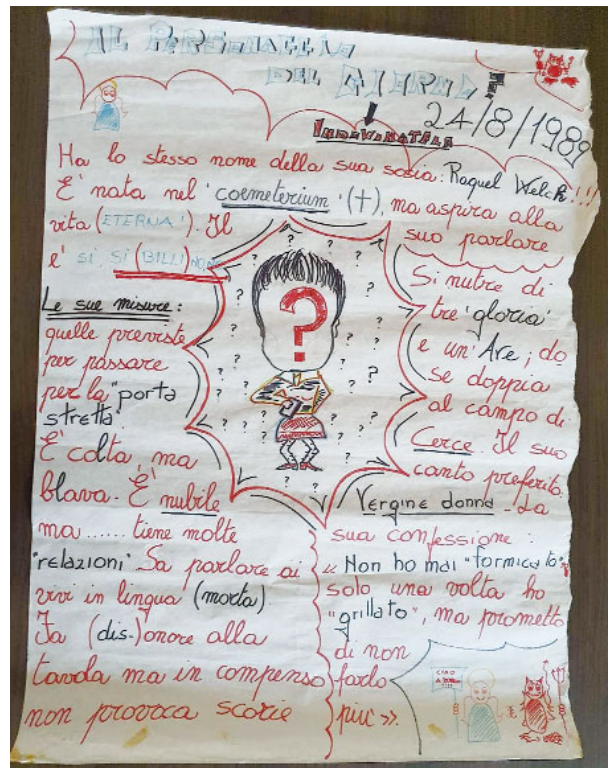 IL PERSONAGGIO
DEL GIORNO
24/8/1989
INDOVINATELA
Ha lo stesso nome della sua sosia: Raquel Welch!!!
E' nata nel 'coemeterium' (+), ma aspira alla
vita (ETERNA'). Il suo parlare
e' si si (BILLI) NO NO
Le sue misure:
quelle previste
per passare
per la "porta
stretta".
E' colta, ma
blava. E' nubile
ma...... tiene molte
'relazioni'. Sa parlare ai
vivi in lingua (morta).
Fa (dis-)onore alla
tavola ma in compenso
non provoca scorie
?
Si nutre di
tre 'gloria'
e un' Ave; do
se doppia
al campo di
Cerce. Il suo
canto preferito:
Vergine donna - La
sua confessione:
« Non ho mai "formicato",
solo una volta ho
"grillato", ma prometto
di non
farlo
più ».
CIAO